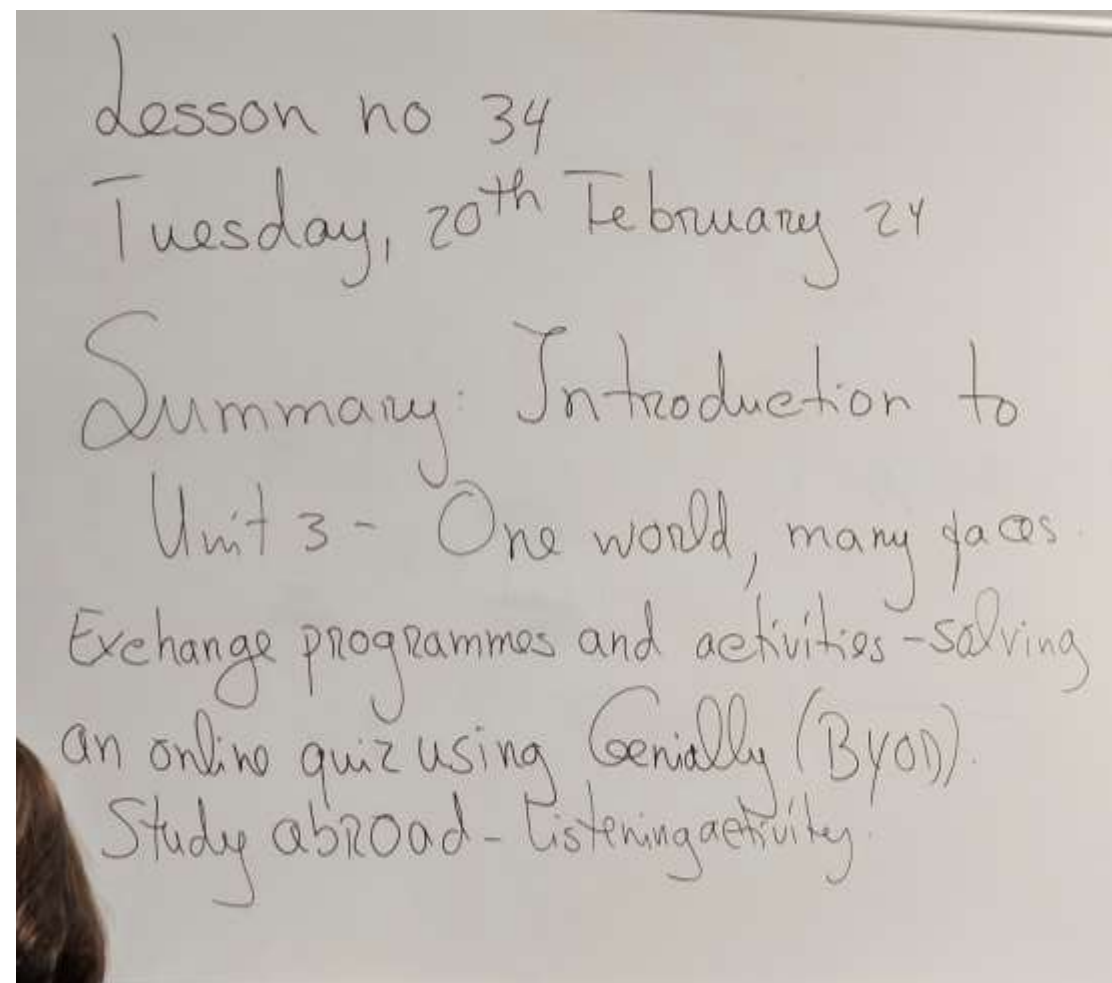 Lesson no 34
Tuesday, 20th February 24
Summary: Introduction to
Unit 3 - One world, many faces.
Exchange programmes and activities - solving
an online quiz using Genially (BYOD).
Study abroad - Listening activity.